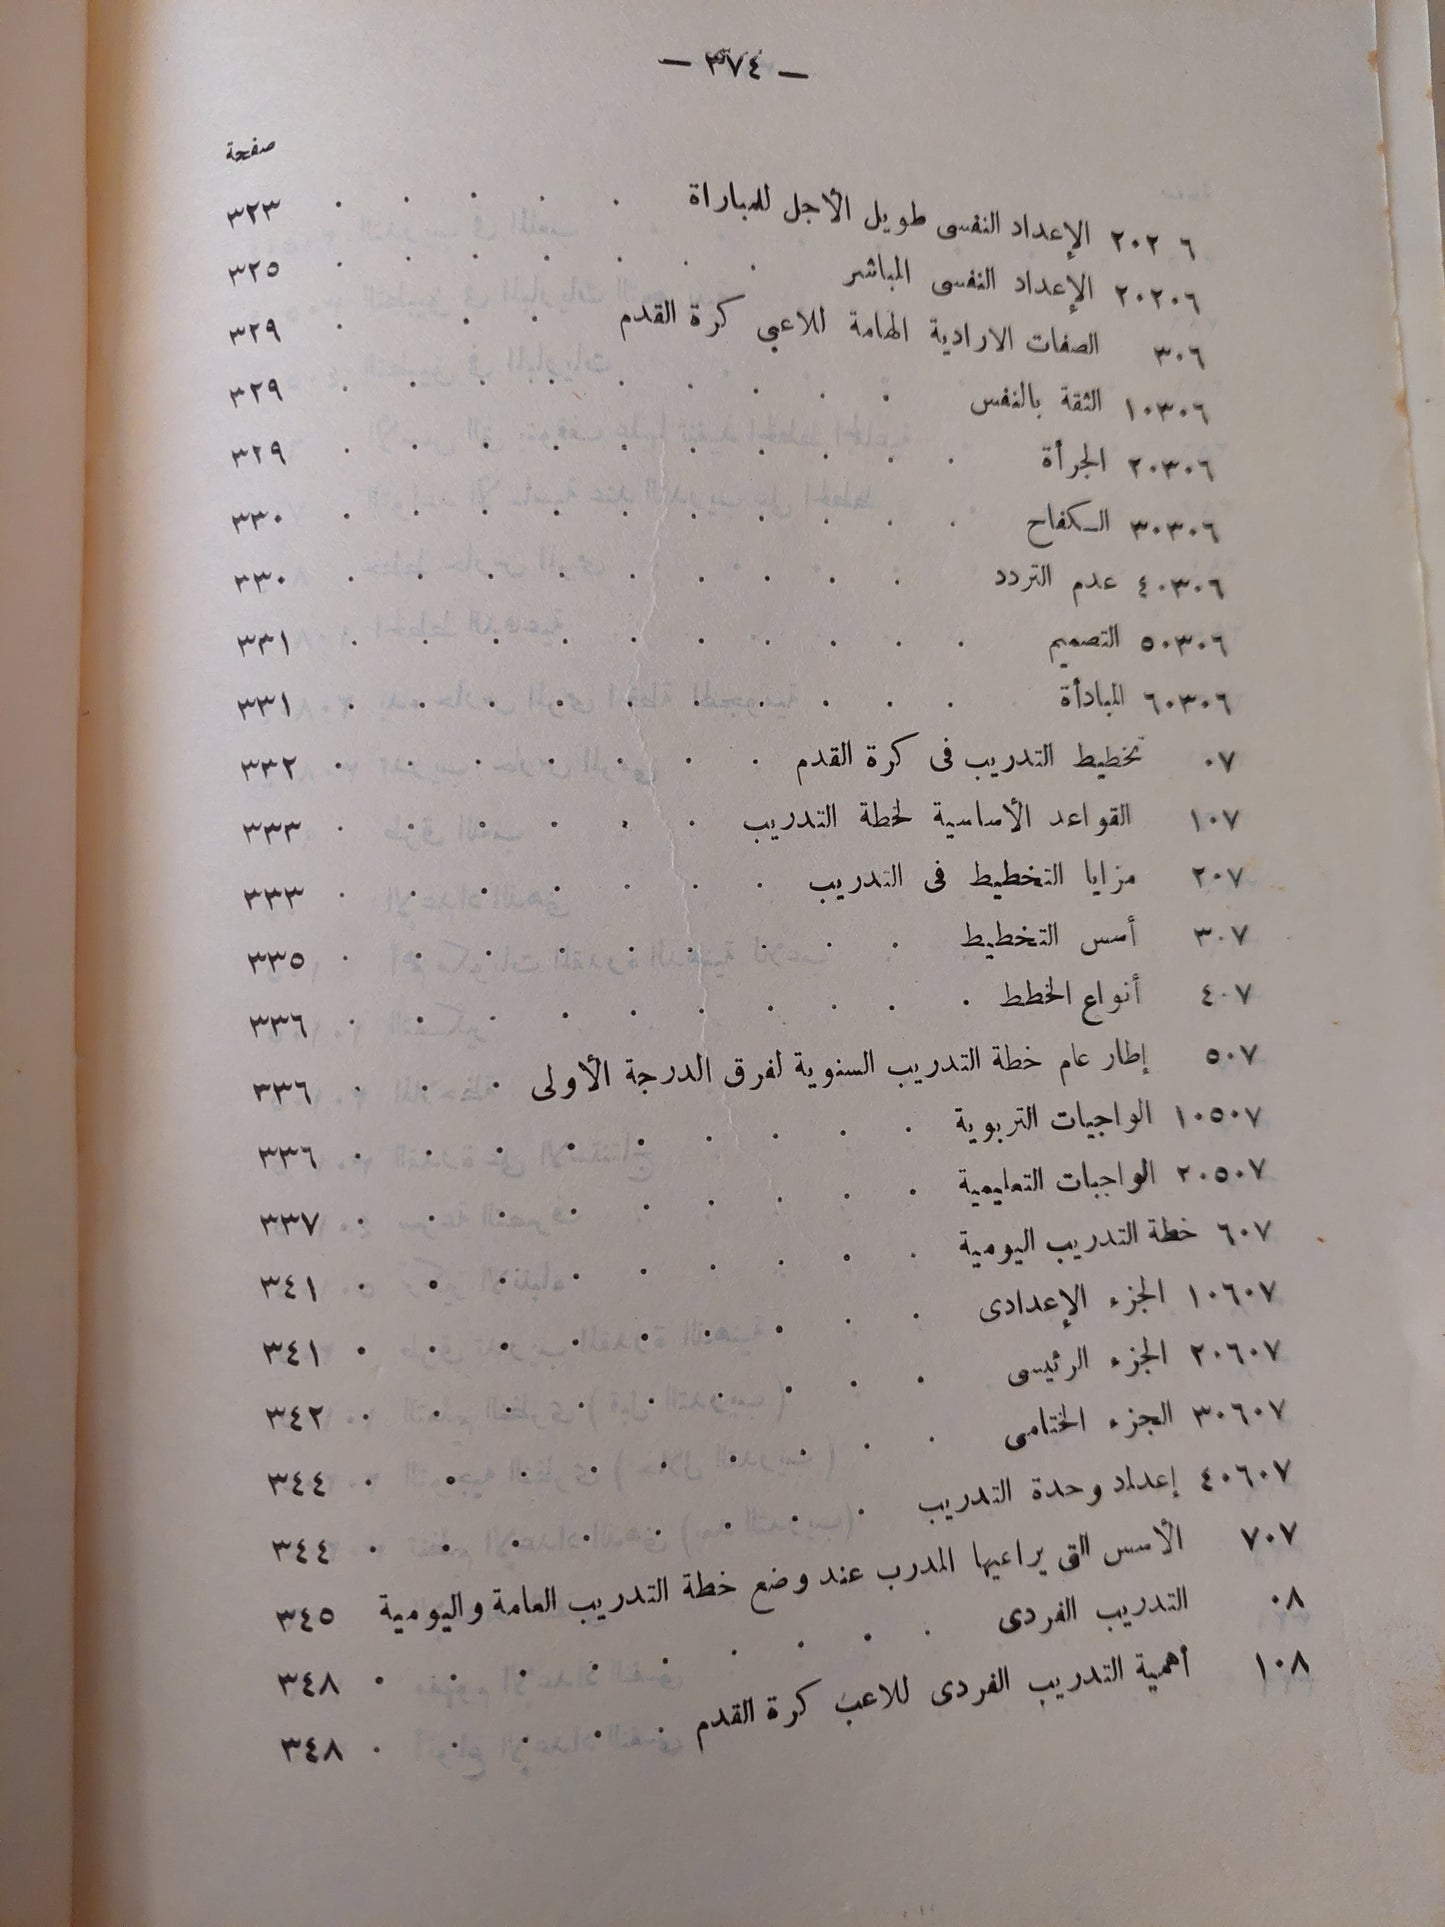 — ٣٧٤ —
صفحة
٢٠٢٠٦ الإعداد النفسى طويل الأجل للمباراة . . . . . ٣٢٣
٢٠٢٠٦ الإعداد النفسى المباشر . . . . . . . ٣٢٥
٣٠٦ الصفات الارادية الهامة للاعبى كرة القدم . . . ٣٢٩
١٠٣٠٦ الثقة بالنفس . . . . . . . . . ٣٢٩
٢٠٣٠٦ الجرأة . . . . . . . . . . ٣٢٩
٣٠٣٠٦ الكفاح . . . . . . . . . . ٣٣٠
٤٠٣٠٦ عدم التردد . . . . . . . . . ٣٣٠
٥٠٣٠٦ التصميم . . . . . . . . . . ٣٣١
٦٠٣٠٦ المبادأة . . . . . . . . . . ٣٣١
٠٧ تخطيط التدريب فى كرة القدم . . . . . . . ٣٣٢
١٠٧ القواعد الأساسية لخطة التدريب . . . . . . ٣٣٣
٢٠٧ مزايا التخطيط فى التدريب . . . . . . . ٣٣٣
٣٠٧ أسس التخطيط . . . . . . . . . ٣٣٥
٤٠٧ أنواع الخطط . . . . . . . . . . ٣٣٦
٥٠٧ إطار عام خطة التدريب السنوية لفرق الدرجة الأولى . . . ٣٣٦
١٠٥٠٧ الواجبات التربوية . . . . . . . . . ٣٣٦
٢٠٥٠٧ الواجبات التعليمية . . . . . . . . . ٣٣٧
٦٠٧ خطة التدريب اليومية . . . . . . . . . ٣٤١
١٠٦٠٧ الجزء الإعدادى . . . . . . . . . ٣٤١
٢٠٦٠٧ الجزء الرئيسى . . . . . . . . . ٣٤٢
٣٠٦٠٧ الجزء الختامى . . . . . . . . . ٣٤٤
٤٠٦٠٧ إعداد وحدة التدريب . . . . . . . . ٣٤٤
٧٠٧ الأسس التى يراعيها المدرب عند وضع خطة التدريب العامة واليومية ٣٤٥
٠٨ التدريب الفردى . . . . . . . . . ٣٤٨
١٠٨ أهمية التدريب الفردى للاعب كرة القدم . . . . . ٣٤٨